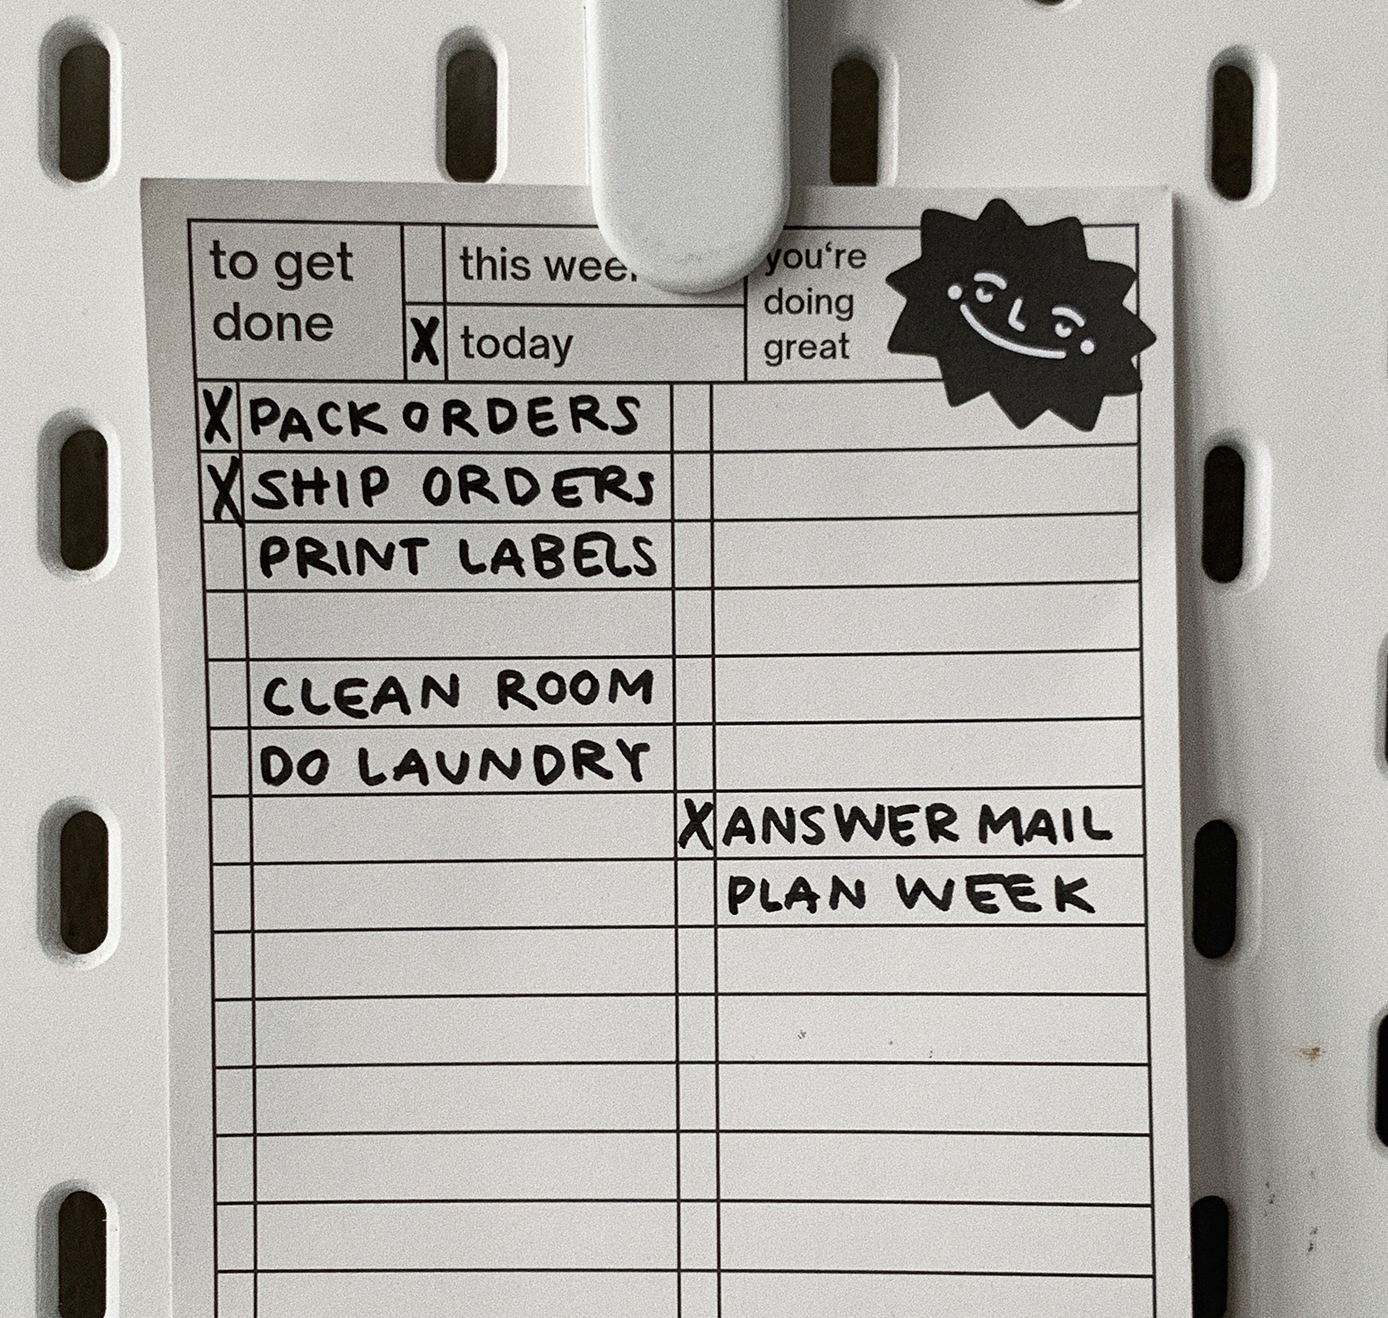 to get
done
this week
X today
you're
doing
great
X PACK ORDERS
X SHIP ORDERS
PRINT LABELS
CLEAN ROOM
DO LAUNDRY
X ANSWER MAIL
PLAN WEEK